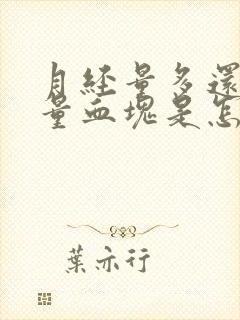 月經量多還
量血塊是怎
葉亦行